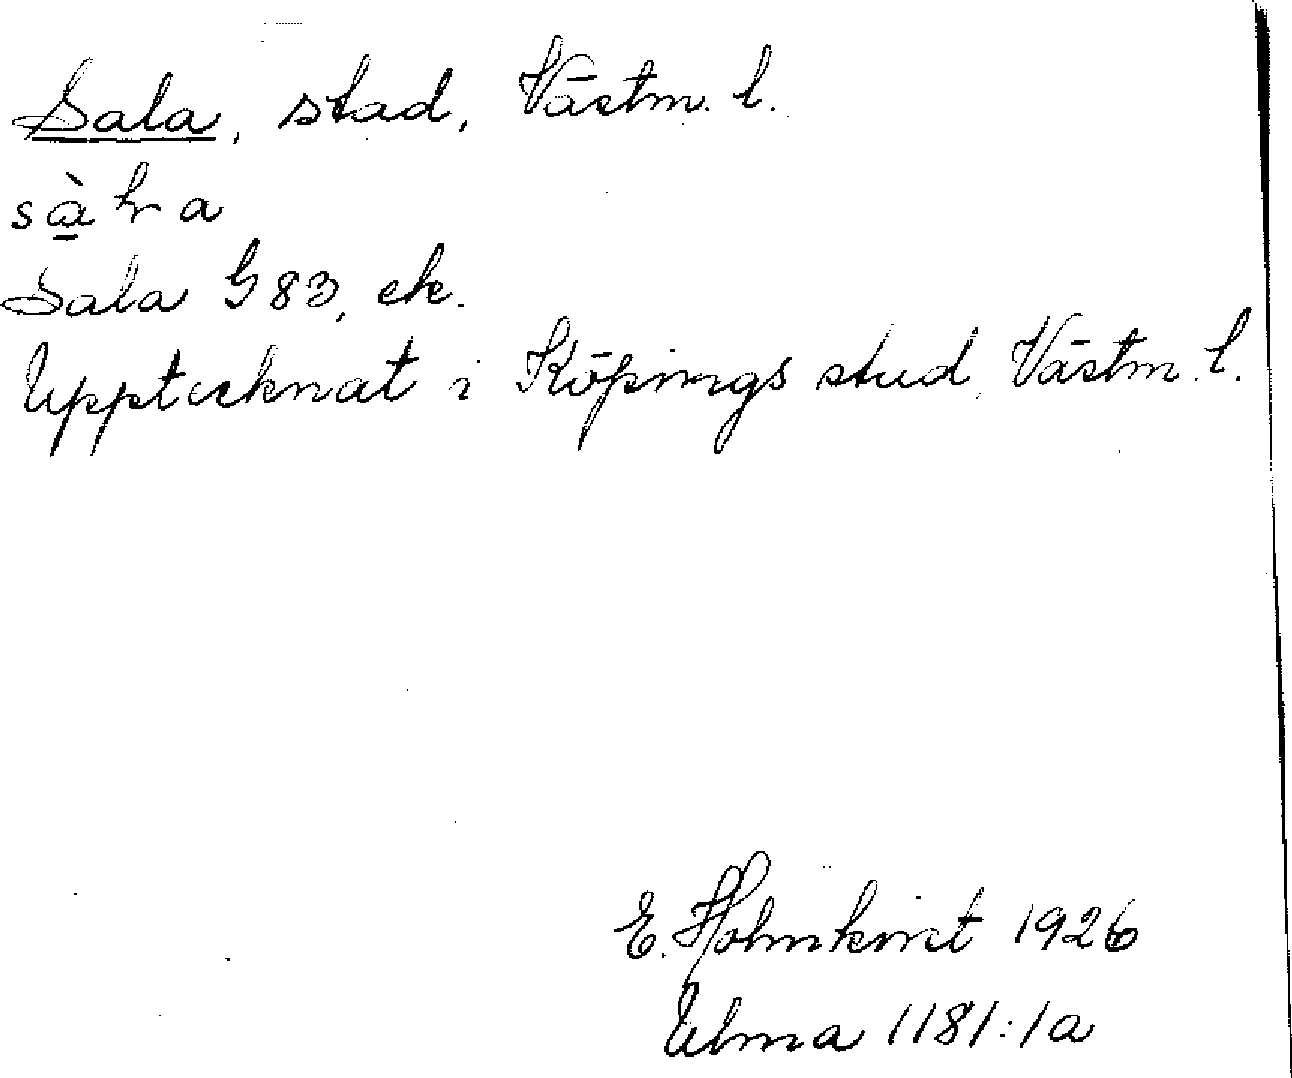 Sala, stad, Västm. l.
sàl̵a
Sala G 83, ek.
Upptecknat i Köpings stad, Västm. l.
E. Holmkvist 1926
Ulma 1181:1a